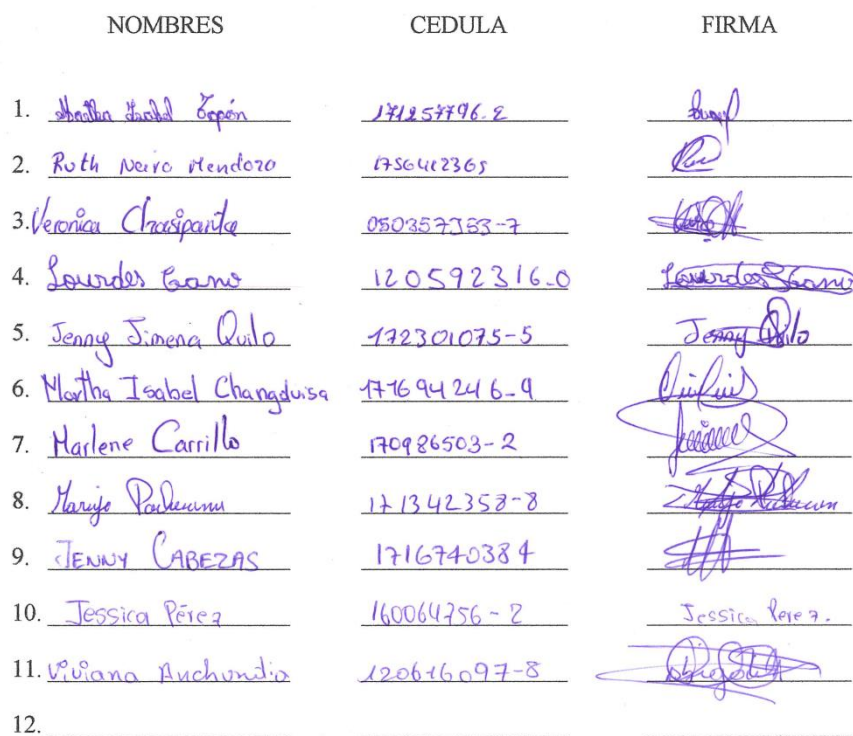 NOMBRES CEDULA FIRMA
1. Martha Isabel Tapón 171257796-2
2. Ruth Neiro Mendozo 1756412365
3. Veronica Chasipanta 050357353-7
4. Lourdes Cano 120592316-0 Lourdes Cano
5. Jenny Jimena Quilo 172301075-5 Jenny Quilo
6. Martha Isabel Changduisa 171694246-9
7. Marlene Carrillo 170986503-2
8. 171342358-8
9. JENNY CABEZAS 1716740384
10. Jessica Pérez 160064756-2 Jessica Perez.
11. Viviana 120616097-8
12.